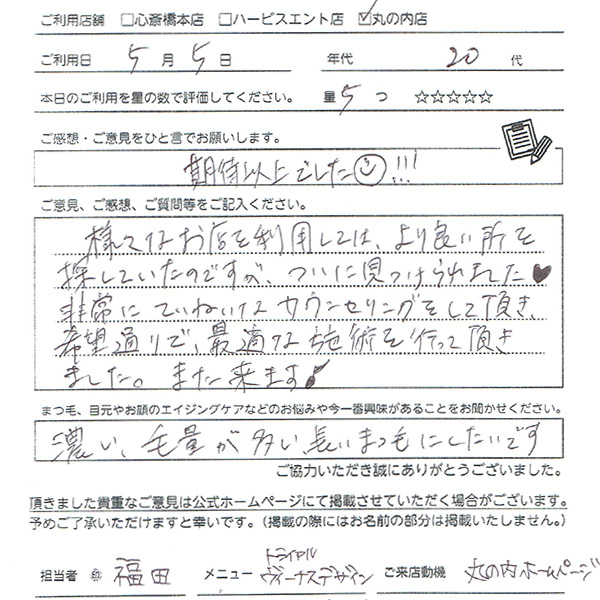 ご利用店舗 □心斎橋本店 □ハービスエント店 ☑丸の内店
ご利用日 5月5日 年代 20代
本日のご利用を星の数で評価してください。 星5つ ☆☆☆☆☆
ご感想・ご意見をひと言でお願いします。
期待以上でした!!!
ご意見、ご感想、ご質問等をご記入ください。
様々なお店を利用しては、より良い所を
探していたのですが、ついに見つけられました♥
非常にていねいなカウンセリングをして頂き、
希望通りで、最適な施術を行って頂き
ました。また来ます♪
まつ毛、目元やお顔のエイジングケアなどのお悩みや今一番興味があることをお聞かせください。
濃い、毛量が多い長いまつ毛にしたいです
ご協力いただき誠にありがとうございました。
頂きました貴重なご意見は公式ホームページにて掲載させていただく場合がございます。
予めご了承いただけますと幸いです。(掲載の際にはお名前の部分は掲載いたしません。)
トライアル
担当者 ㊞ 福田 メニュー ヴィーナスデザイン ご来店動機 丸の内ホームページ